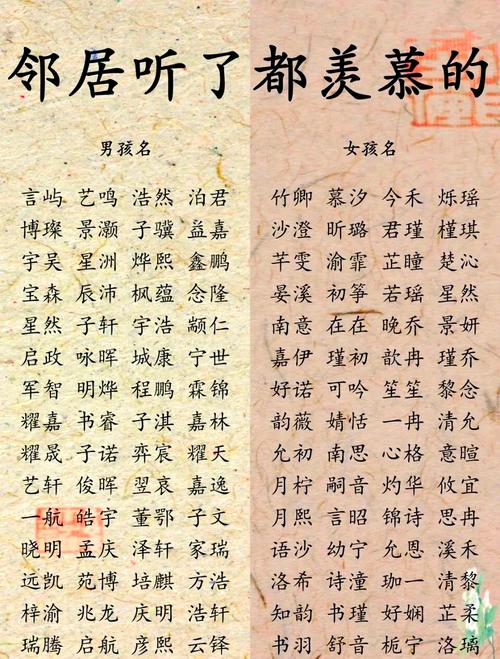 邻居听了都羡慕的
男孩名
言屿 艺鸣 浩然 泊君
博璨 景灏 子骥 益嘉
宇吴 星洲 烨熙 鑫鹏
宝森 辰沛 枫蕴 念隆
星然 子轩 宇浩 颛仁
启政 咏晖 城康 宁世
军智 明烨 程鹏 霖锦
耀嘉 书睿 子淇 嘉林
耀晟 子诺 弈宸 耀天
艺轩 俊晖 翌哀 嘉逸
一航 皓宇 董鄂 子文
晓明 孟庆 泽轩 家瑞
远凯 苑博 培麒 方浩
梓渝 兆龙 庆明 浩轩
瑞腾 启航 彦熙 云铎
女孩名
竹卿 慕汐 今禾 烁瑶
沙澄 昕璐 君瑾 槿琪
芊雯 渝霏 芷瞳 楚沁
晏溪 初筝 若瑶 星然
南意 在在 晚乔 景妍
嘉伊 瑾初 歆冉 瑾乔
好诺 可吟 笙笙 黎念
韵薇 婧恬 一冉 清允
允初 南思 心格 意暄
月柠 嗣音 灼华 攸宜
月熙 言昭 锦诗 思冉
语沙 幼宁 允恩 溪禾
洛希 诗潼 珈一 清黎
知韵 书瑾 好娴 芷柔
书羽 舒音 栀宁 洛璃